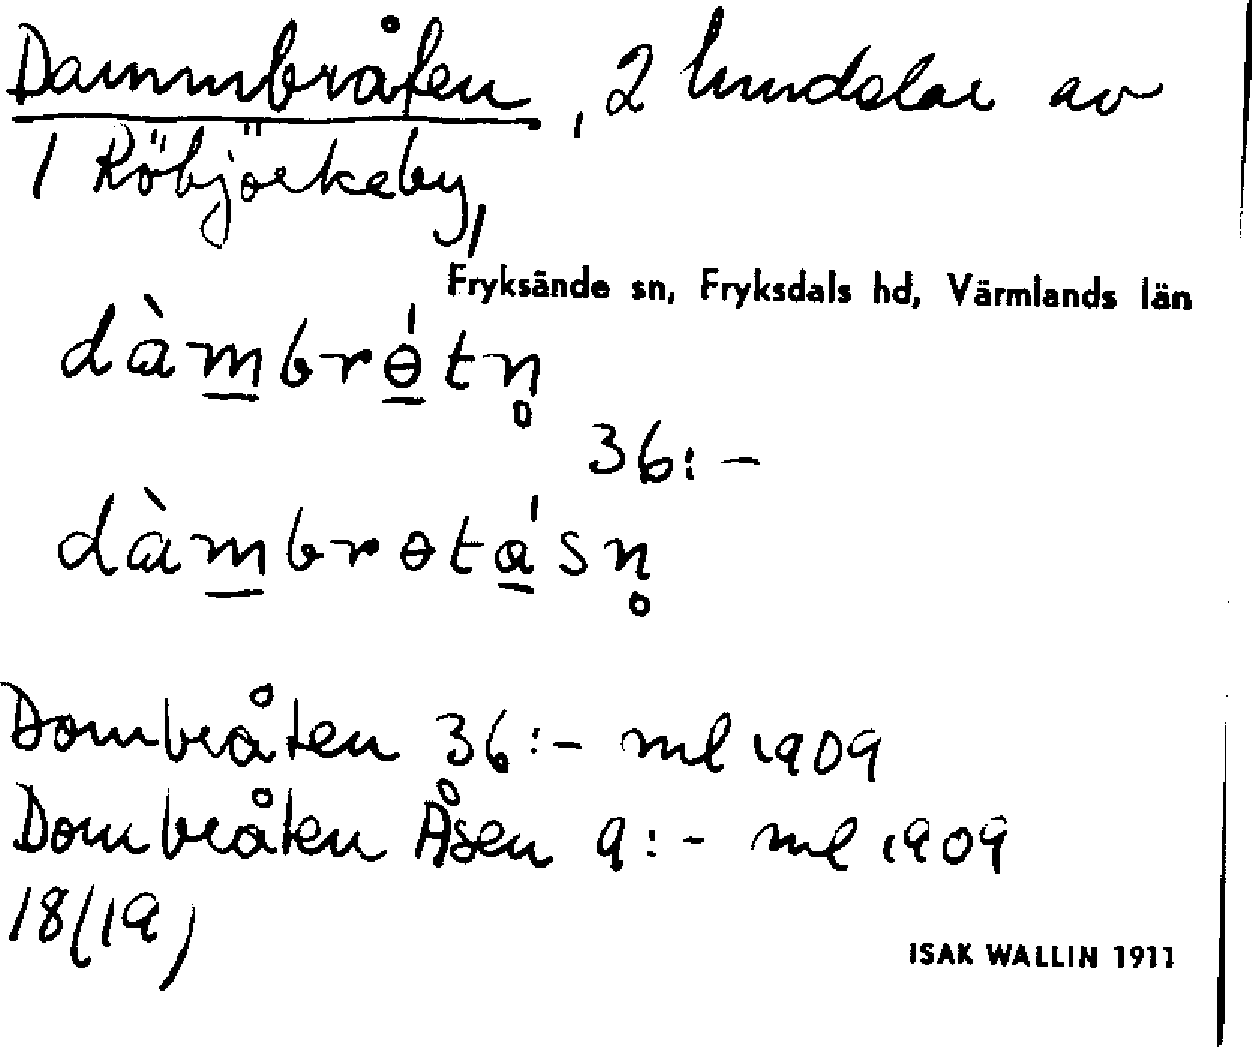 Dammbråten, 2 hemdelar av
1 Röbjörkeby,
Fryksände sn, Fryksdals hd, Värmlands län
dàm̲brɵ̲́tn̥
36:-
dàm̲brɵtá̲sn̥
Dombråten 36:- ml 1909
Dombråten Åsen 9:- ml 1909
18(19)
ISAK WALLIN 1911